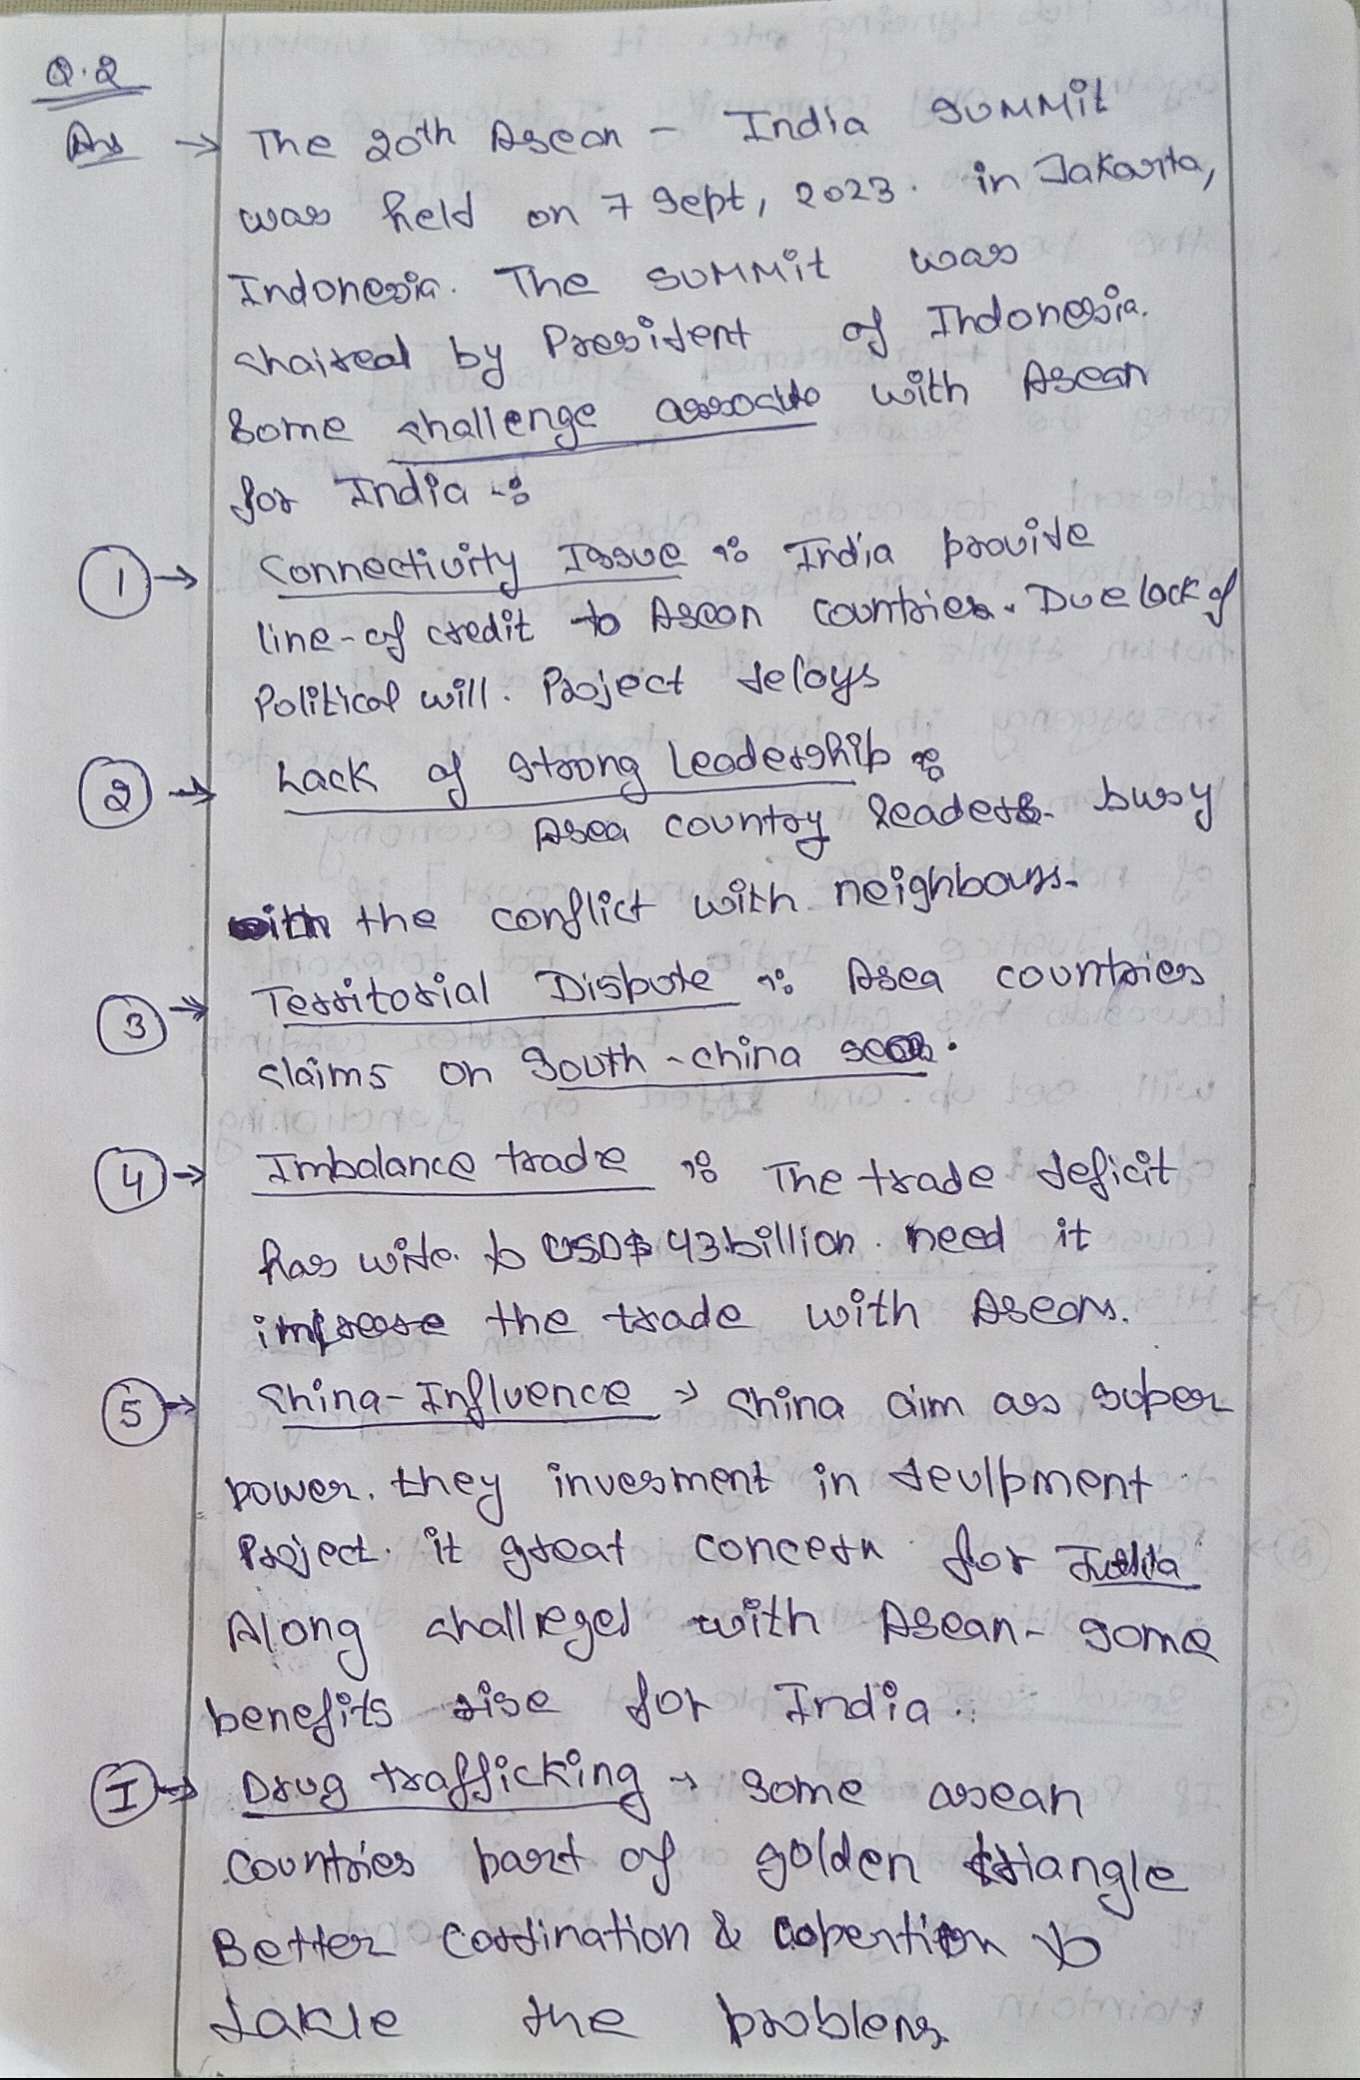 Q.2
Ans → The 20th Asean - India summit
was held on 7 Sept, 2023. in Jakarta,
Indonesia. The summit was
chaired by President of Indonesia.
Some challenge associate with Asean
for India :-
① → Connectivity Issue :- India provide
line-of credit to Asean countries. Due lack of
Political will. Project delays
② → Lack of strong leadership :-
Asea country leaders busy
with the conflict with neighbours.
③ → Territorial Dispute :- Asea countries
claims on South-china sea.
④ → Imbalance trade :- The trade deficit
has wide to USD$ 43.billion. need it
the trade with Aseans.
⑤ → China-Influence → China aim as super
power. they invesment in devlpment
Project. it great concern for India
Along challeged with Asean- some
benefits rise for India.
Ⓘ → Drug trafficking → some asean
countries part of golden triangle
Better cordination & copertion to
takle the problems